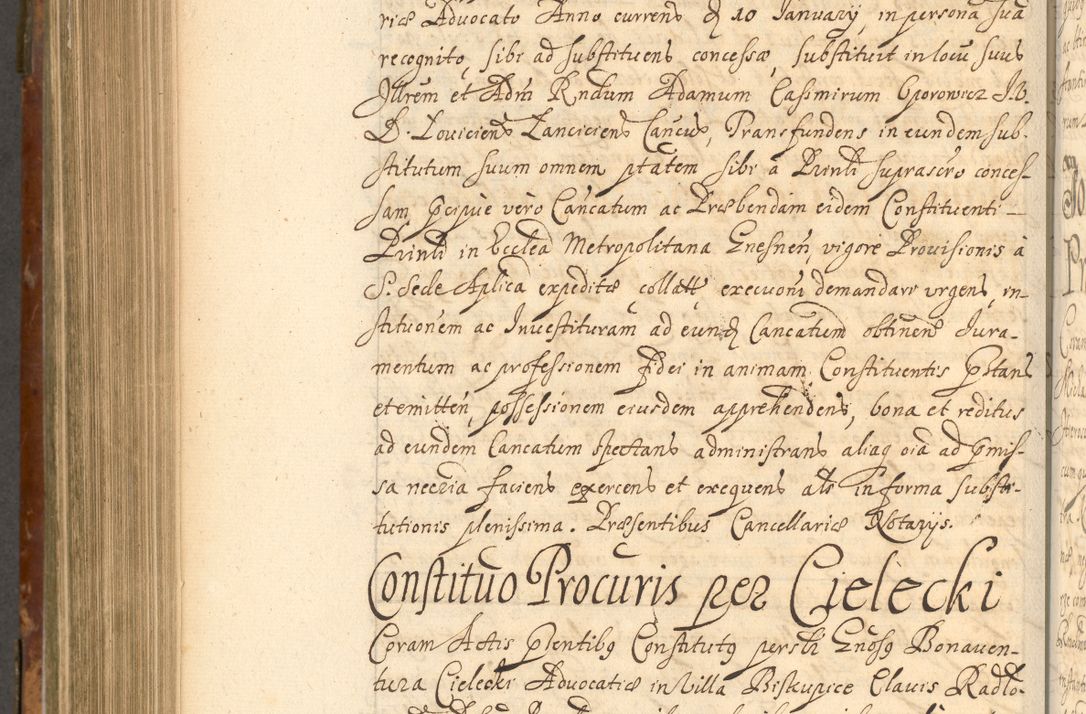 riæ Advocato Anno currenȝ d 10 January, in persona sua
recognito, sibi ad substituenȝ concessæ, substituit in locũ suus
Jllrem et Adm Rndum Adamum Casimirum Oporowicz J.V.
D. Loviciens Lanciciens Cancus, Transfundens in eundem sub-
stitutum suum omnem ptatem sibi à Prinli suprascro conces-
sam, pcipue vero Cancatum ac Præbendam eidem Constituenti
Prinli in Ecclea Metropolitana Gnesnen, vigore Provisionis à
S. Sede Aplica expeditæ collatt, execuoni demandare urgens, in-
stituonem ac Investituram ad eund Cancatum obtinens Jura-
mentum ac professionem fidei in animam Constituentis pstans
et emitten, possessionem eiusdem apprehendens, bona et reditus
ad eundem Cancatum spectans administrans aliaq oia ad pmis-
sa necria faciens exercens et exequens als in forma substi-
tutionis plenissima. Præsentibus Cancellariæ Notarijs.
Constituo Procuris per Cielecki
Coram Actis psentibq Constitutq persli Gnosq Bonaven-
tura Cielecki Advocatiæ in Villa Biskupice Clavis Radło-